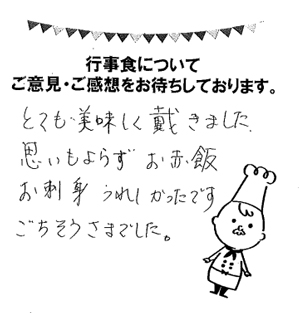 行事食について
ご意見・ご感想をお待ちしております。
とても美味しく戴きました。
思いもよらず お赤飯
お刺身 うれしかったです
ごちそうさまでした。